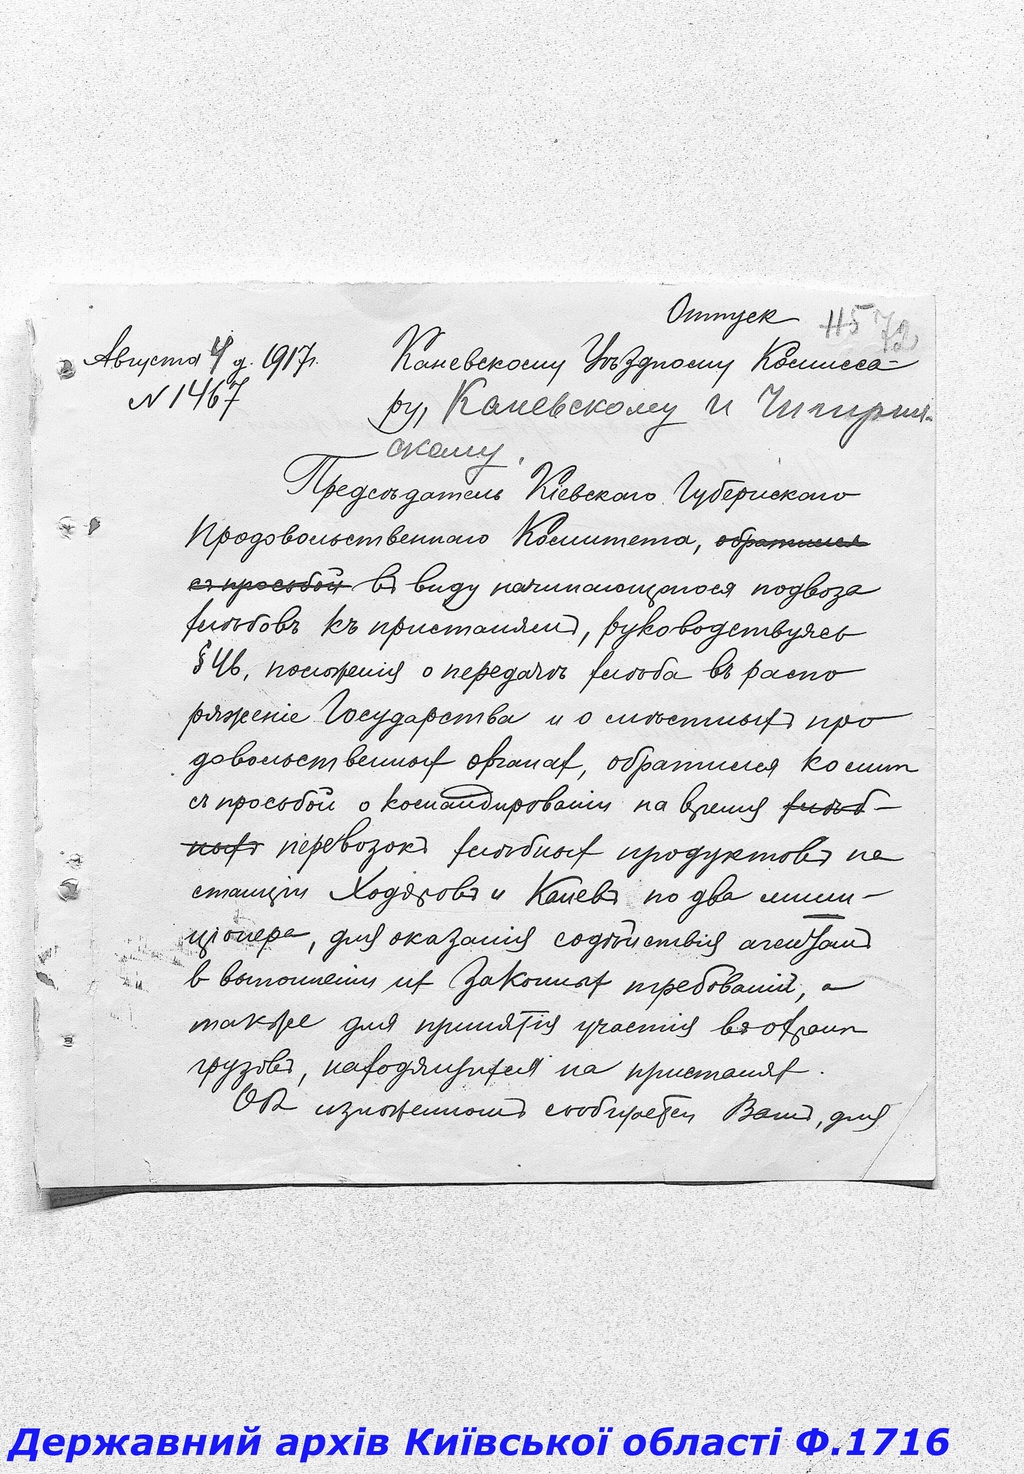 Отпуск
115 72
Августа 4 д. 1917 г.
N 1467
Каневскому Уѣздному Комисса-
ру, Каневскому и Чигирин-
скому.
Предсѣдатель Кіевскаго Губернскаго
Продовольственнаго Комитета, обратился
съ просьбой въ виду начинающагося подвоза
хлѣбовъ къ пристанямъ, руководствуясь
§ 46, положенія о передачѣ хлѣба въ распо
ряженіе Государства и о мѣстныхъ про
довольственных органах, обратился ко мнѣ
съ просьбой о командированіи на время хлѣб-
ныхъ перевозокъ хлѣбных продуктовъ на
станціи Ходоровъ и Каневъ по два мили-
ціонера, для оказанія содѣйствія агентамъ
в выполненіи их законных требованій, а
также для принятія участія въ охранѣ
грузовъ, находящихся на пристанях.
Об изложенномъ сообщается Вамъ, для
Державний архів Київської області Ф.1716